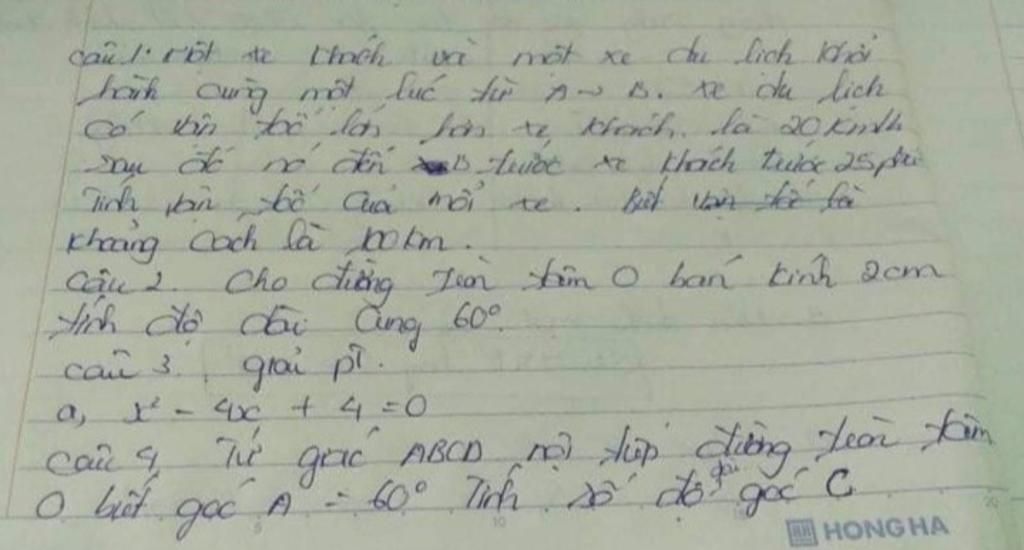 câu 1. một xe khách và một xe du lịch khởi
hành cùng một lúc từ A → B. xe du lịch
có vận tốc lớn hơn xe khách là 20 km/h
sau đó nó đến B trước xe khách trước 25 phút
Tính vận tốc của mỗi xe. Biết vận tốc là
khoảng cách là 100 km.
câu 2. Cho đường tròn tâm O bán kính 2cm
tính độ dài cung 60°.
câu 3. giải pt.
a, x² - 4x + 4 = 0
câu 4, Tứ giác ABCD nội tiếp đường tròn tâm
O biết góc A = 60° Tính số đo góc C
HONG HA